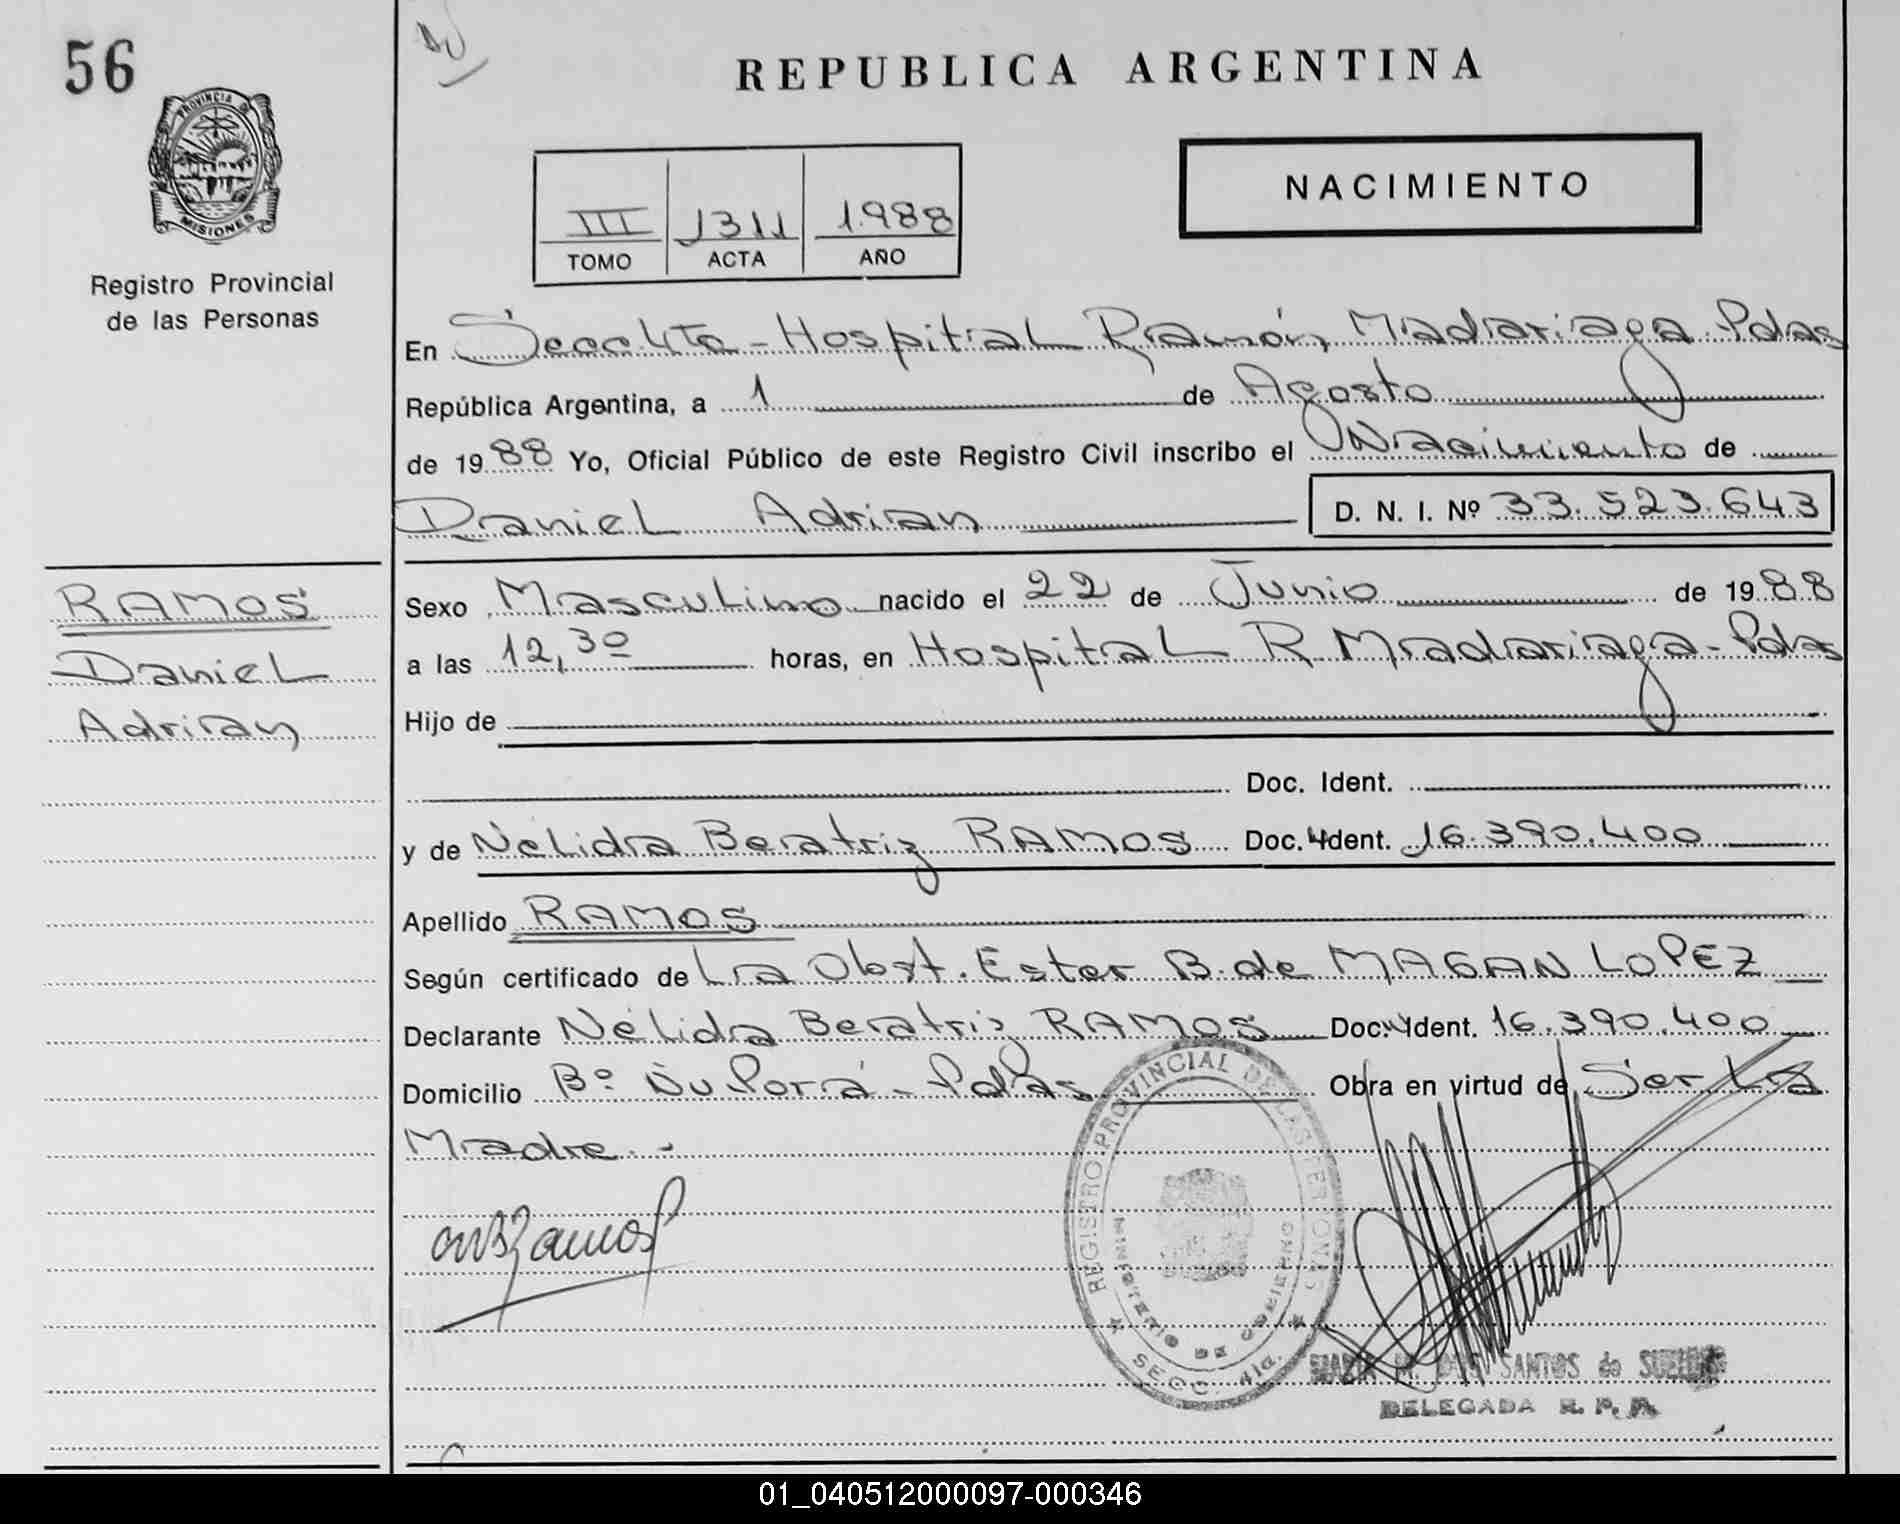 56
PROVINCIA DE
MISIONES
Registro Provincial
de las Personas
REPUBLICA ARGENTINA
III 1311 1.988
TOMO ACTA AÑO
NACIMIENTO
En Secc 4ta - Hospital Ramón Madariaga Pdas
República Argentina, a 1 de Agosto
de 1988 Yo, Oficial Público de este Registro Civil inscribo el Nacimiento de
Daniel Adrian D. N. I. Nº 33.523.643
RAMOS
Daniel
Adrian
Sexo Masculino nacido el 22 de Junio de 1988
a las 12,30 horas, en Hospital R Madariaga - Pdas
Hijo de
Doc. Ident.
y de Nélida Beatriz RAMOS Doc. Ident. 16.390.400
Apellido RAMOS
Según certificado de La Obst. Ester B. de MAGAN LOPEZ
Declarante Nélida Beatriz RAMOS Doc. Ident. 16.390.400
Domicilio Bº Ñu Porá - Pdas Obra en virtud de Ser La
Madre.-
Ramos
REGISTRO PROVINCIAL DE LAS PERSONAS
MINISTERIO DE GOBIERNO
SECC. 4ta.
M. DOS SANTOS de
DELEGADA R. P. P.
01_040512000097-000346